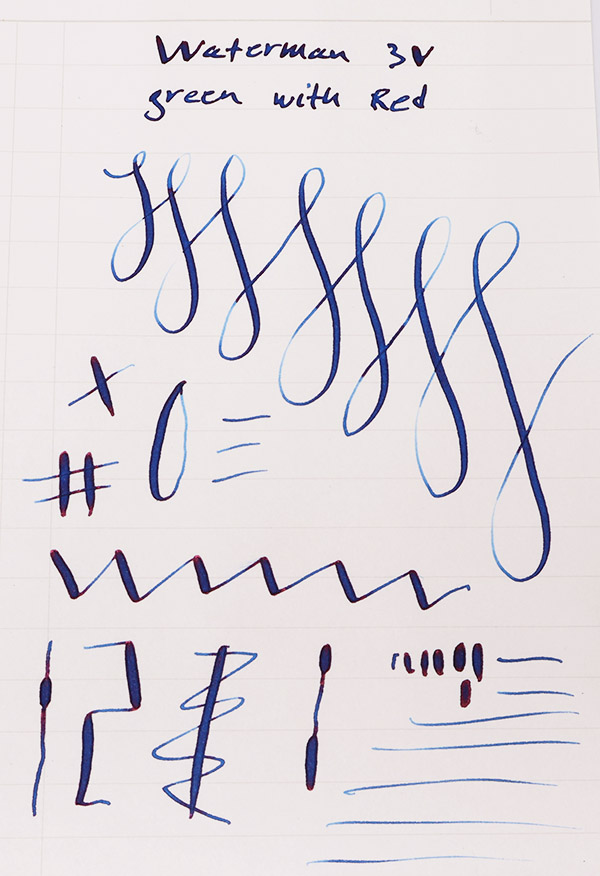 Waterman 3V
green with Red